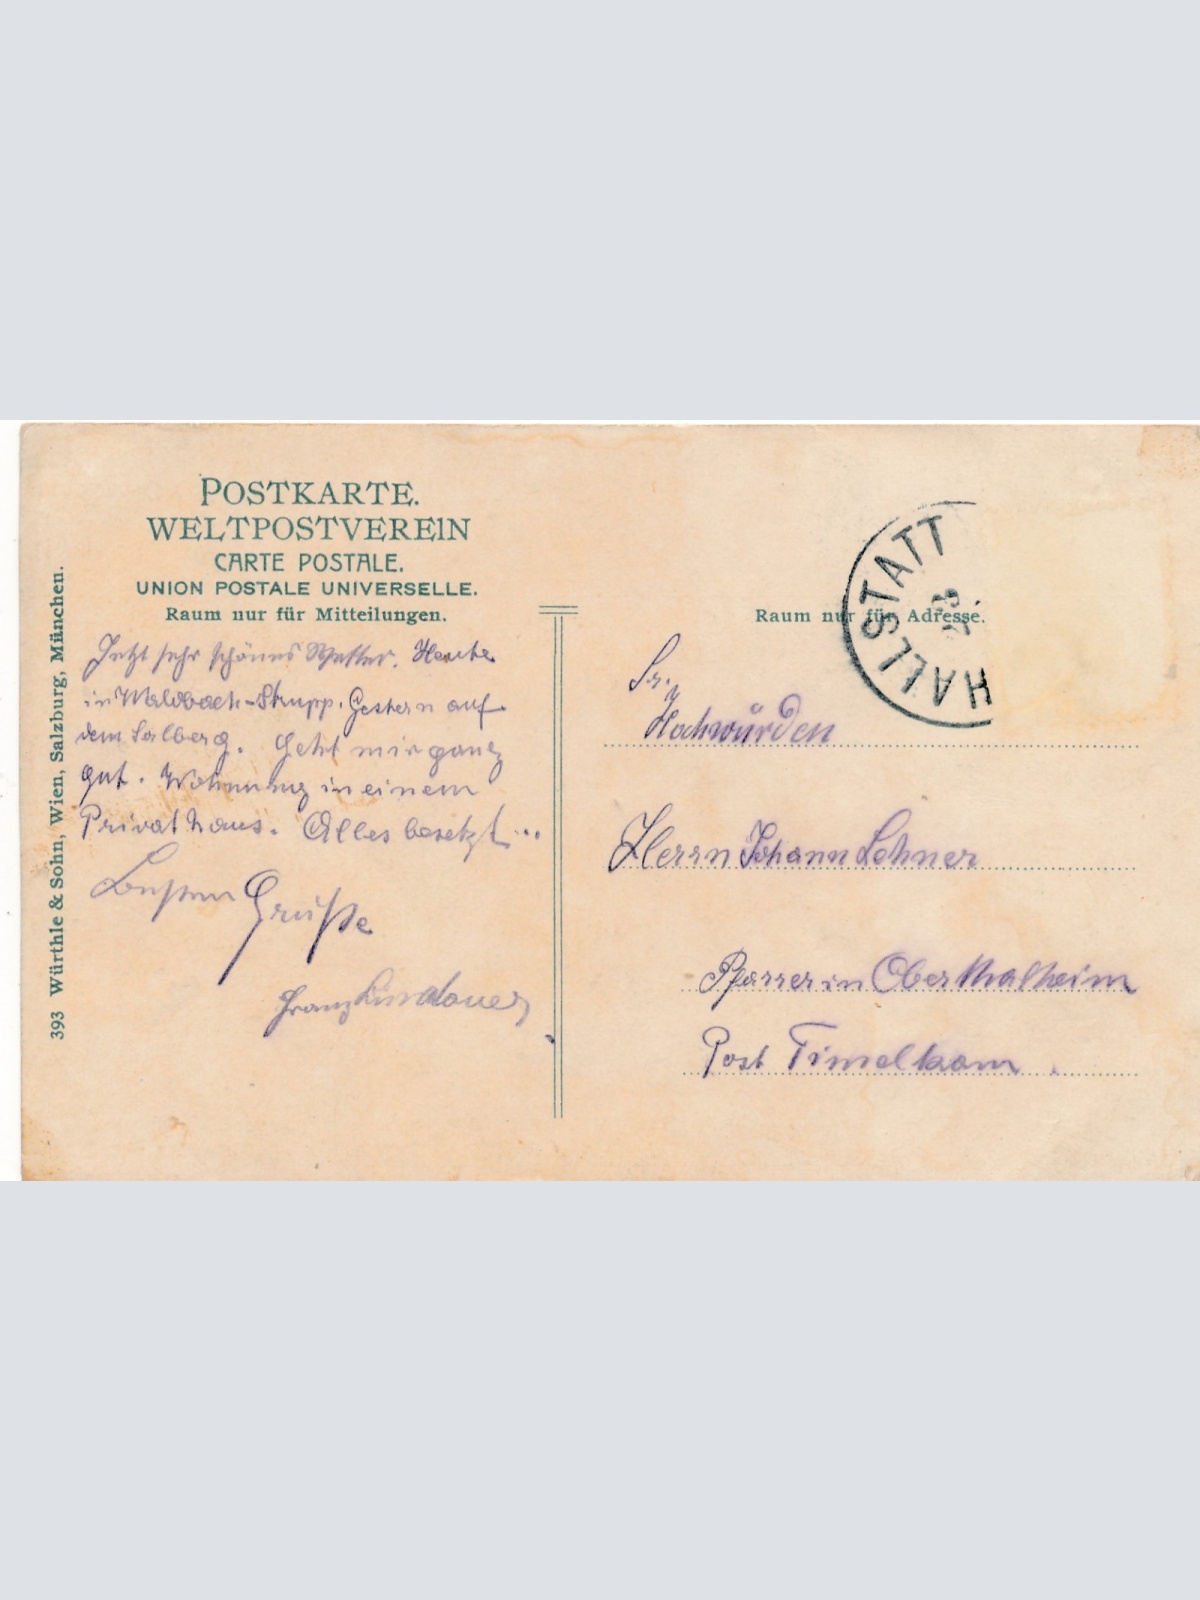 POSTKARTE.
WELTPOSTVEREIN
CARTE POSTALE.
UNION POSTALE UNIVERSELLE.
Raum nur für Mitteilungen.
Jetzt sehr schönes Wetter. Heute
in Waldbach-Strupp. Gestern auf
dem Salberg. Geht mir ganz
gut. Wohnung in einem
Privathaus. Alles besetzt...
Besten Grüße
Franz Lindauer
393 Würthle & Sohn, Wien, Salzburg, München.
HALLSTATT
Raum nur für Adresse.
Sr.
Hochwürden
Herrn Johann Lehner
Pfarrer in Oberthalheim
Post Timelkam.